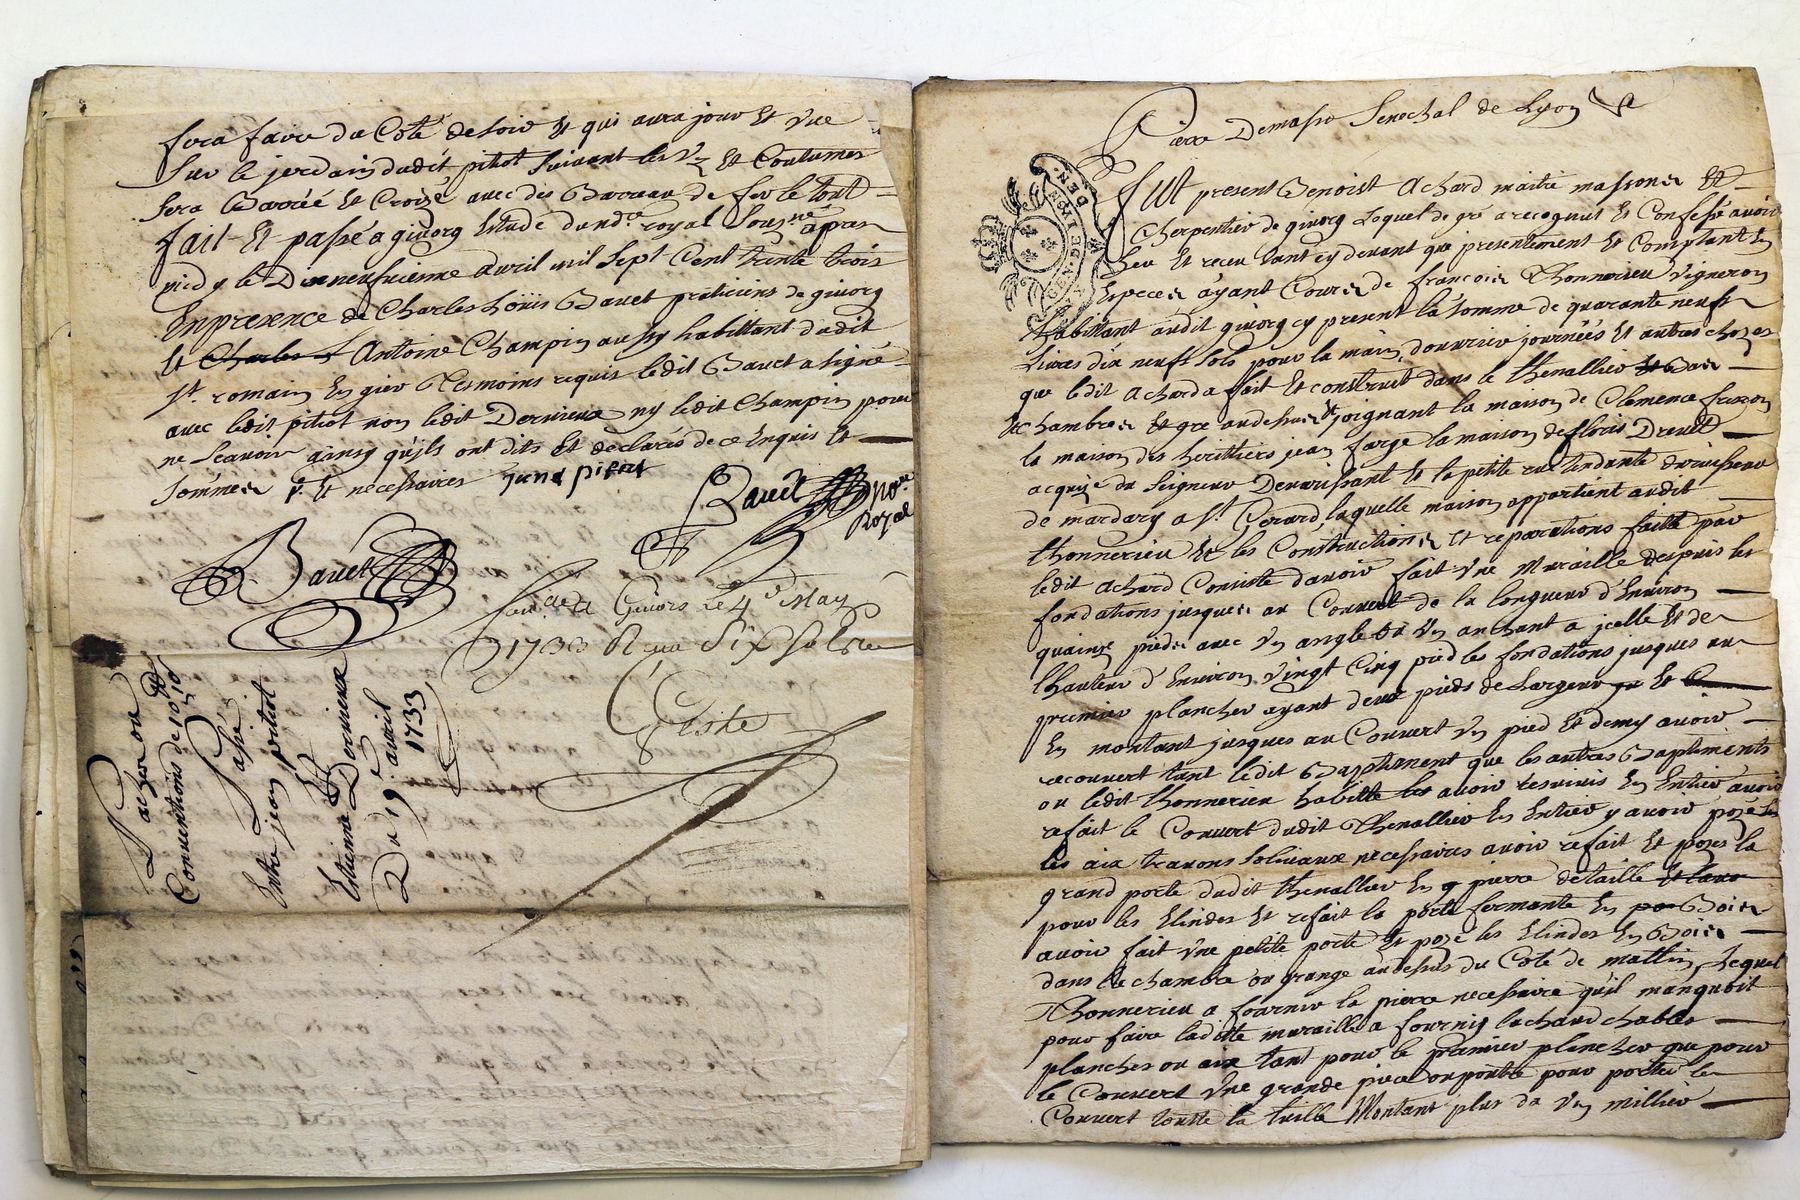 sera faire du Coté de soir Et qui aura jour Et Vue
Sur le jerdain dudit pitiot suivant les Vz Et Coutumes
sera Barrée Et Croizé avec des Barreau de fer le tout
fait Et passé a givorg Etude du nore royal Sousné apres
midy le Dixneufuieme avril mil sept Cent trente trois
En presence de Charles Loüis Bauet praticiens de givorg
Et Charles Antoine Champin aussy habittant dudit
st. romain En gier tesmoins requis ledit Bauet a signé
avec ledit pitiot non ledit Dervieux ny ledit Champin pour
ne Scavoir ainsy qu'ils ont dits Et declarés de ce Enquis Et
sommés Et necessaires
Bauet nore
Royal
Bauet
a Givors Le 4e May
1733 Six sols
Giste
Conventions de
Passé
Entre jean pitiot
Et
Estienne Dervieux
Du 19e. avril
1733
Senechal de Lyon
GEN. DE LYON
Fut present Benoist Achard maitre masson Et
Cherpentier de givorg Lequel de gré a recognut Et Confessé avoir
heu Et receu tant cy devant que presentement Et Comptant En
Especes ayant Cours de francois Thonnerieu Vigneron
habittant audit givorg cy present la somme de quarante neuf
Livres dix neuf sols pour la main d'ouvrier journées Et autres chozes
que ledit Achard a fait Et construit dans le thenallier
chambres Et gre audessus joignant la maison de Clemence
la maison des herittiers jean farge la maison de floris Drevet
acquize du Seigneur Et la petite rue tendante du ruisseau
de mardary a st. Gerard, laquelle maison appartient audit
thonnerieu Et les Constructions Et reparations faitte par
ledit Achard Consiste d'avoir fait Vne Muraille despuis les
fondations jusques au Couvert de la longueur d'Environ
quainze pieds avec Vn angle Vn anchant a jcelle Et de
lhauteur d'Environ vingt Cinq pied les fondations jusques au
premier plancher ayant deux pieds de Largeur Et
En montant jusques au Couvert Vn pied Et demy avoir
recouvert tant ledit Baptiment que les autres Baptiments
ou ledit thonnerieu habitte avoir En Entier avoir
refait le Couvert dudit Thenallier En Entier y avoir pozé
les aix travons soliveaux necessaires avoir refait Et pozes la
grand porte dudit thenallier En pierre de taille
pour les Elindes Et refait la porte fermante En Bois
avoir fait Vne petite porte Et pozé les Elindes En Bois
dans le chambre ou grange audessus du Coté de mattin, Lequel
Thonnerieu a fournir la pierre necessaire qu'il manquoit
pour faire laditte muraille a fournis la chaud chables
planches ou aix tant pour le premier plancher que pour
le Couvert Vne grande piece ou poutre pour porter le
Couvert toutte la tuille Montant plus da Vn millier